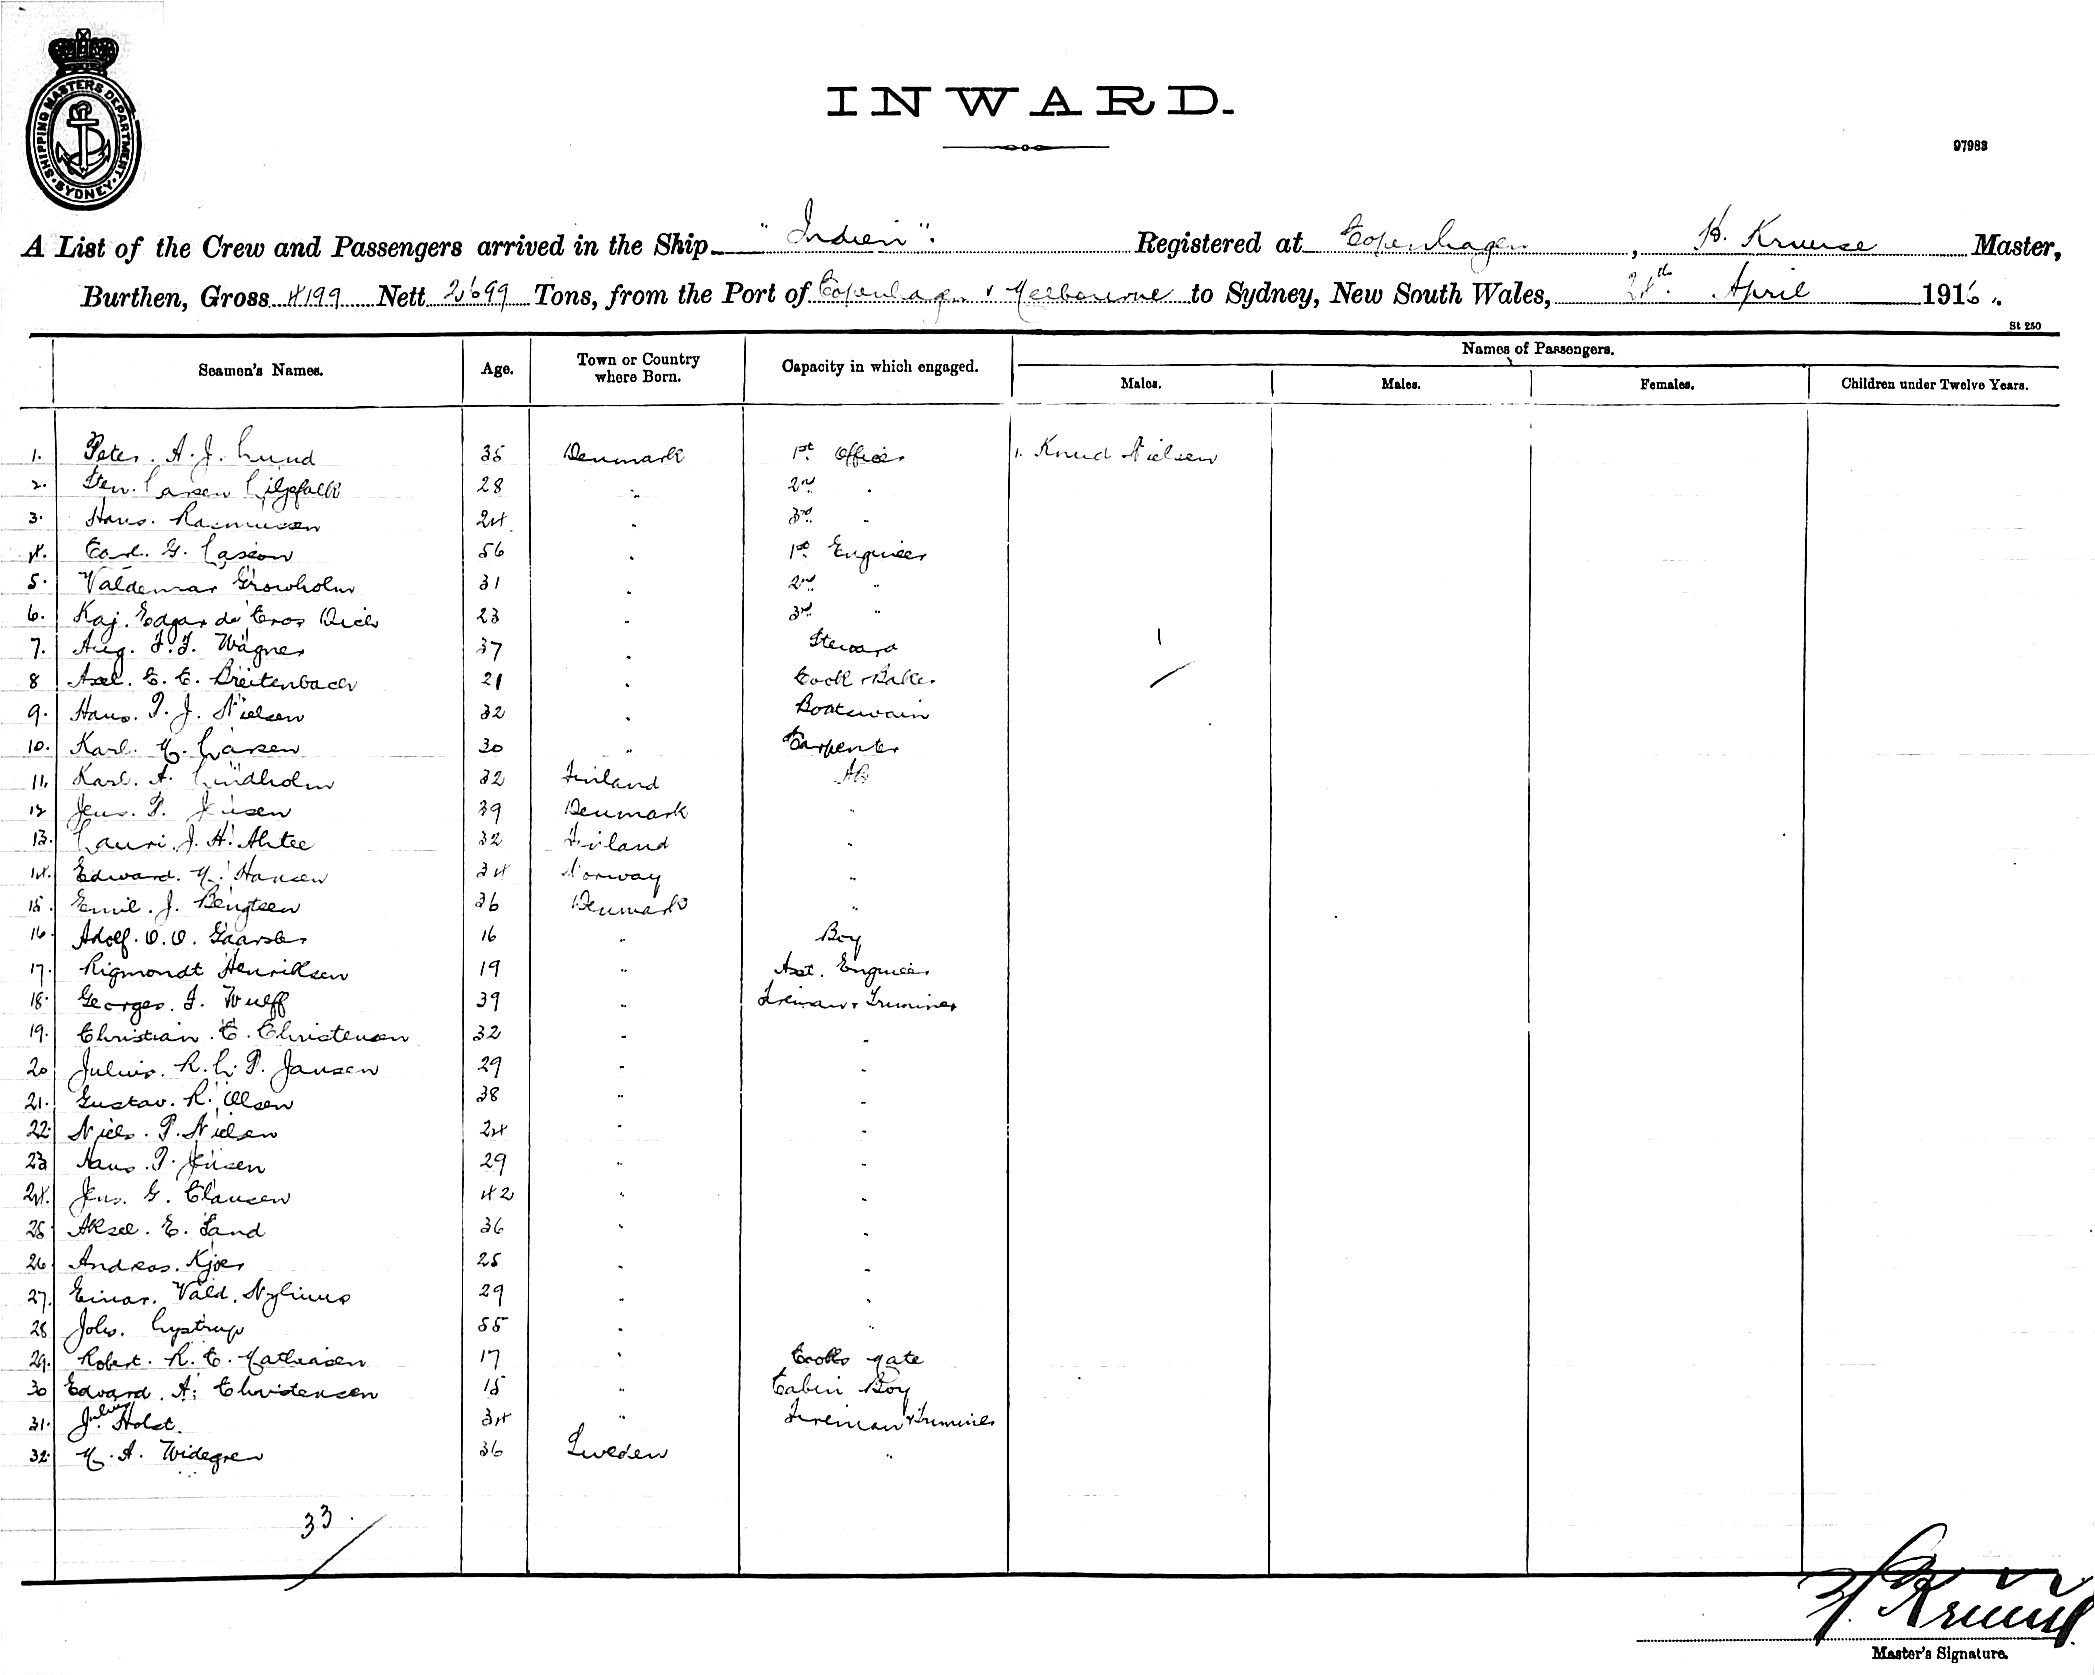 SHIPPING MASTERS DEPARTMENT SYDNEY
INWARD.
97983
A List of the Crew and Passengers arrived in the Ship "Indien". Registered at Copenhagen, Kruuse Master,
Burthen, Gross 4199 Nett 2699 Tons, from the Port of Copenhagen & Melbourne to Sydney, New South Wales, April 1916.
St 250
Seamen's Names. Age. Town or Country where Born. Capacity in which engaged. Names of Passengers.
Males. Males. Females. Children under Twelve Years.
1. Peter. A. J. Lund 35 Denmark 1st Officer 1. Knud Nielsen
2. Sten. Larsen 28 " 2nd "
3. Hans. Rasmussen 24 " 3rd "
4. Carl. G. 56 " 1st Engineer
5. Valdemar Growholm 31 " 2nd "
6. Kaj. Edgar 23 " 3rd "
7. Aug. F. F. Wagner 37 " Steward 1
8 Axel. C. C. Breitenbach 21 " Cook & Baker
9. Hans. P. J. Nielsen 32 " Boatswain
10. Karl. M. Larsen 30 " Carpenter
11. Karl. A. Lindholm 32 Finland AB
12 Jens. P. Jensen 39 Denmark "
13. Lauri. J. H. Ahtee 32 Finland "
14. Edward. M. Hansen 34 Norway "
15. Emil. J. Bengtsen 36 Denmark "
16. Adolf. O. O. 16 " Boy
17. Rigmondt Henriksen 19 " Asst. Engineer
18. Georges. F. Wulff 39 " Fireman & Trimmer
19. Christian. C. Christensen 32 " "
20 Julius. R. L. P. Jansen 29 " "
21. Gustav. R. Olsen 38 " "
22. Niels. P. Nielsen 24 " "
23 Hans. P. Jensen 29 " "
24. Jens. G. Clausen 42 " "
25 Aksel. E. 36 " "
26 Andreas. Kjoer 25 " "
27. Einar. Vald. Nylinus 29 " "
28 Johs. Lystrup 55 " "
29. Robert. R. C. Mathiasen 17 " Cooks Mate
30 Edvard. A. Christensen 15 " Cabin Boy
31. J. Julius Holst. 34 " Fireman & Trimmer
32. M. A. Widegren 36 Sweden "
33
Kruuse
Master's Signature.